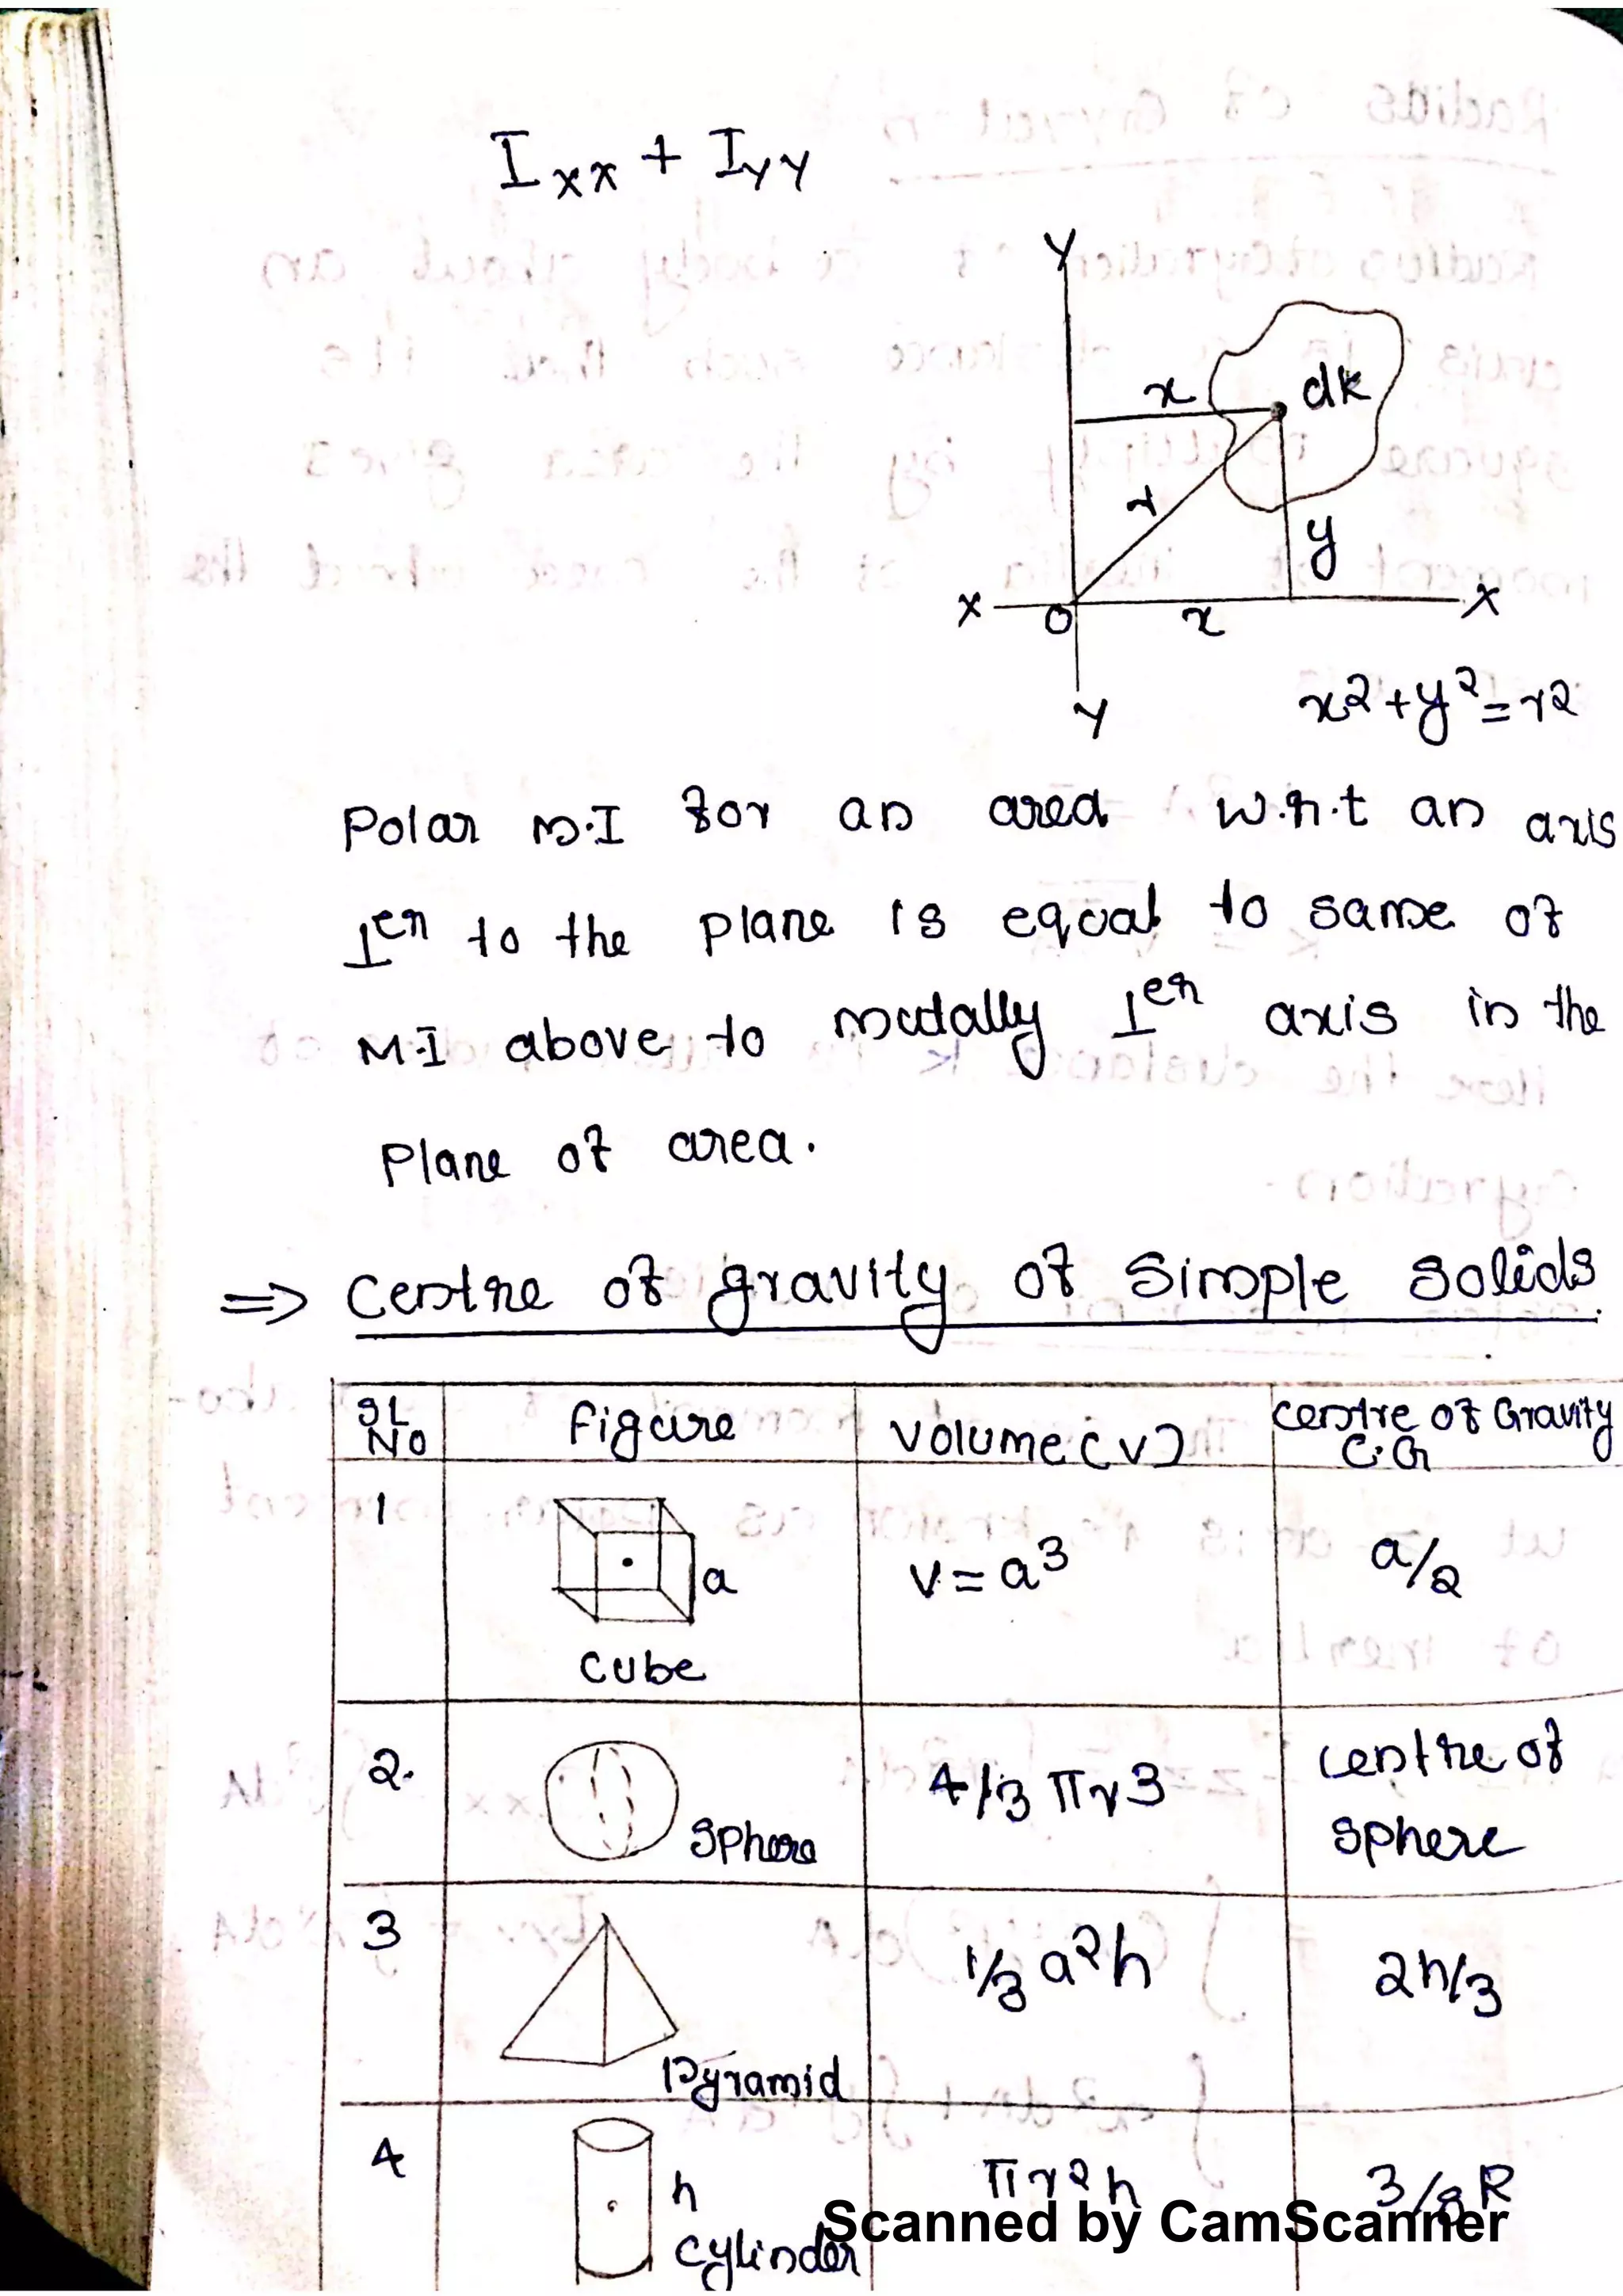 Ixx + Iyy
Y
x dk
r
y
X O x X
Y
x2 + y2 = r2
Polar M.I for an area w.r.t an axis
⊥er to the plane is equal to same of
M.I above to mutally ⊥er axis in the
Plane of area.
⇒ Centre of gravity of Simple Solids.
SL No Figure Volume (V) Centre of Gravity C.G
1 a Cube V = a3 a/2
2. Sphere 4/3 πr3 Centre of sphere
3 Pyramid 1/3 a2h 2h/3
4 h Cylinder πr2h 3/8R
Scanned by CamScanner